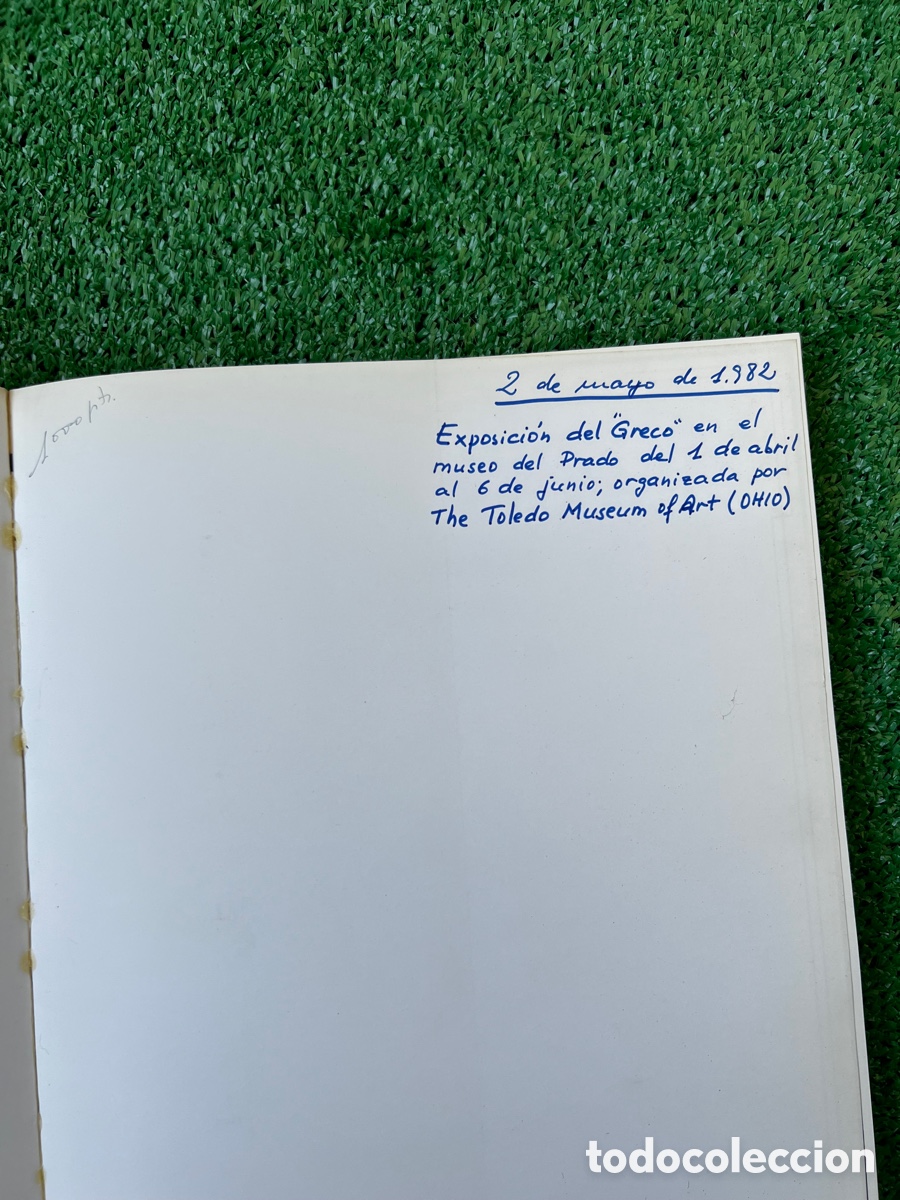 1000 pts.
2 de mayo de 1.982
Exposición del "Greco" en el
museo del Prado del 1 de abril
al 6 de junio; organizada por
The Toledo Museum of Art (OHIO)
todocoleccion